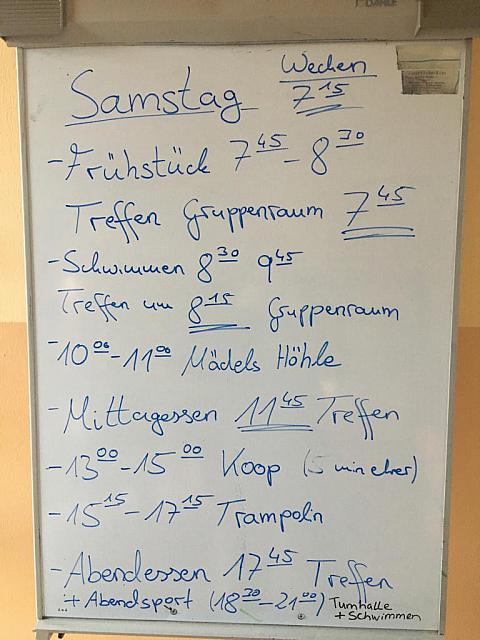 Wecken
Samstag 7 15
- Frühstück 7 45 - 8 30
Treffen Gruppenraum 7 45
- Schwimmen 8 30 9 45
Treffen um 8 15 Gruppenraum
- 10 00 - 11 00 Mädels Höhle
- Mittagessen 11 45 Treffen
- 13 00 - 15 00 Koop (5 min eher)
- 15 15 - 17 15 Trampolin
- Abendessen 17 45 Treffen
+ Abendsport (18 30 - 21 00) Turnhalle
... + Schwimmen